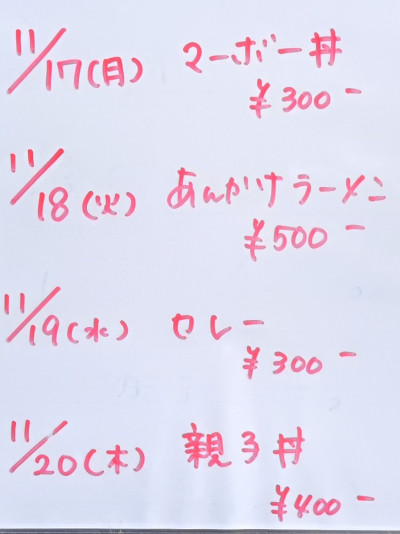 11/17(月) マーボー丼
¥300-
11/18(火) あんかけラーメン
¥500-
11/19(水) カレー
¥300-
11/20(木) 親子丼
¥400-